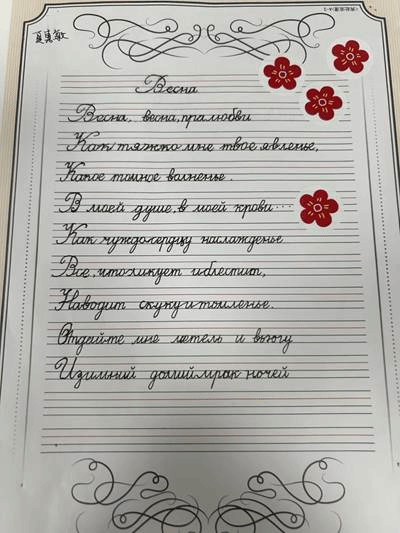 夏慧敏
Весна
Весна, весна, пра любви
Как тяжко мне твое явленье,
Какое томное волненье.
В моей душе, в моей крови...
Как чуждо сердцу наслажденье
Все, что ликует и блестит,
Наводит скуку и томленье.
Отдайте мне метель и вьюгу
И зимний долгий мрак ночей